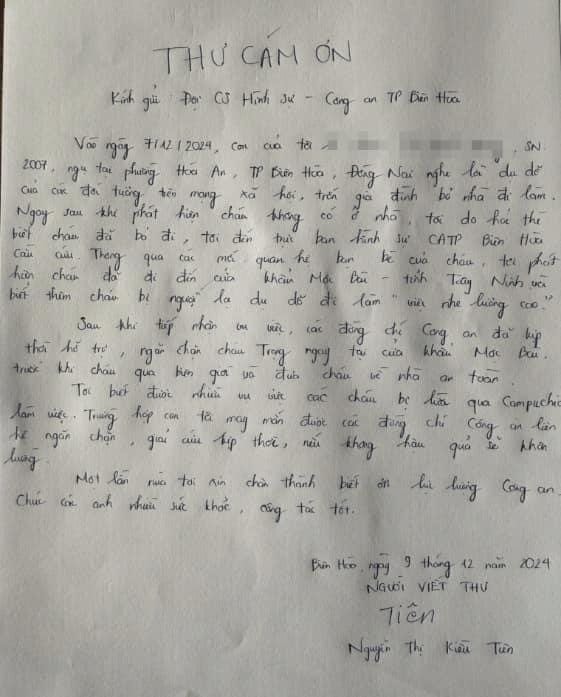 THƯ CÁM ƠN
Kính gửi: Đội CS Hình sự - Công an TP Biên Hòa
Vào ngày 7/12/2024, con của tôi , SN.
2007, ngụ tại phường Hóa An, TP Biên Hòa, Đồng Nai nghe lời dụ dỗ
của các đối tượng trên mạng xã hội, trốn gia đình bỏ nhà đi làm.
Ngay sau khi phát hiện cháu không có ở nhà, tôi do hỏi thì
biết cháu đã bỏ đi, tôi đến trực ban hình sự CATP Biên Hòa
cầu cứu. Thông qua các mối quan hệ bạn bè của cháu, tôi phát
hiện cháu đã đi đến cửa khẩu Mộc Bài - tỉnh Tây Ninh và
biết thêm cháu bị người lạ dụ dỗ đi làm "việc nhẹ lương cao."
Sau khi tiếp nhận vụ việc, các đồng chí Công an đã kịp
thời hỗ trợ, ngăn chặn cháu Trọng ngay tại cửa khẩu Mộc Bài.
trước khi cháu qua biên giới và đưa cháu về nhà an toàn.
Tôi biết được nhiều vụ việc các cháu bị lừa qua Campuchia
làm việc. Trường hợp con tôi may mắn được các đồng chí Công an liên
hệ ngăn chặn, giải cứu kịp thời, nếu không hậu quả sẽ khôn
lường.
Một lần nữa tôi xin chân thành biết ơn lực lượng Công an.
Chúc các anh nhiều sức khỏe, công tác tốt.
Biên Hòa, ngày 9 tháng 12 năm 2024
NGƯỜI VIẾT THƯ
Tiên
Nguyễn Thị Kiều Tiên